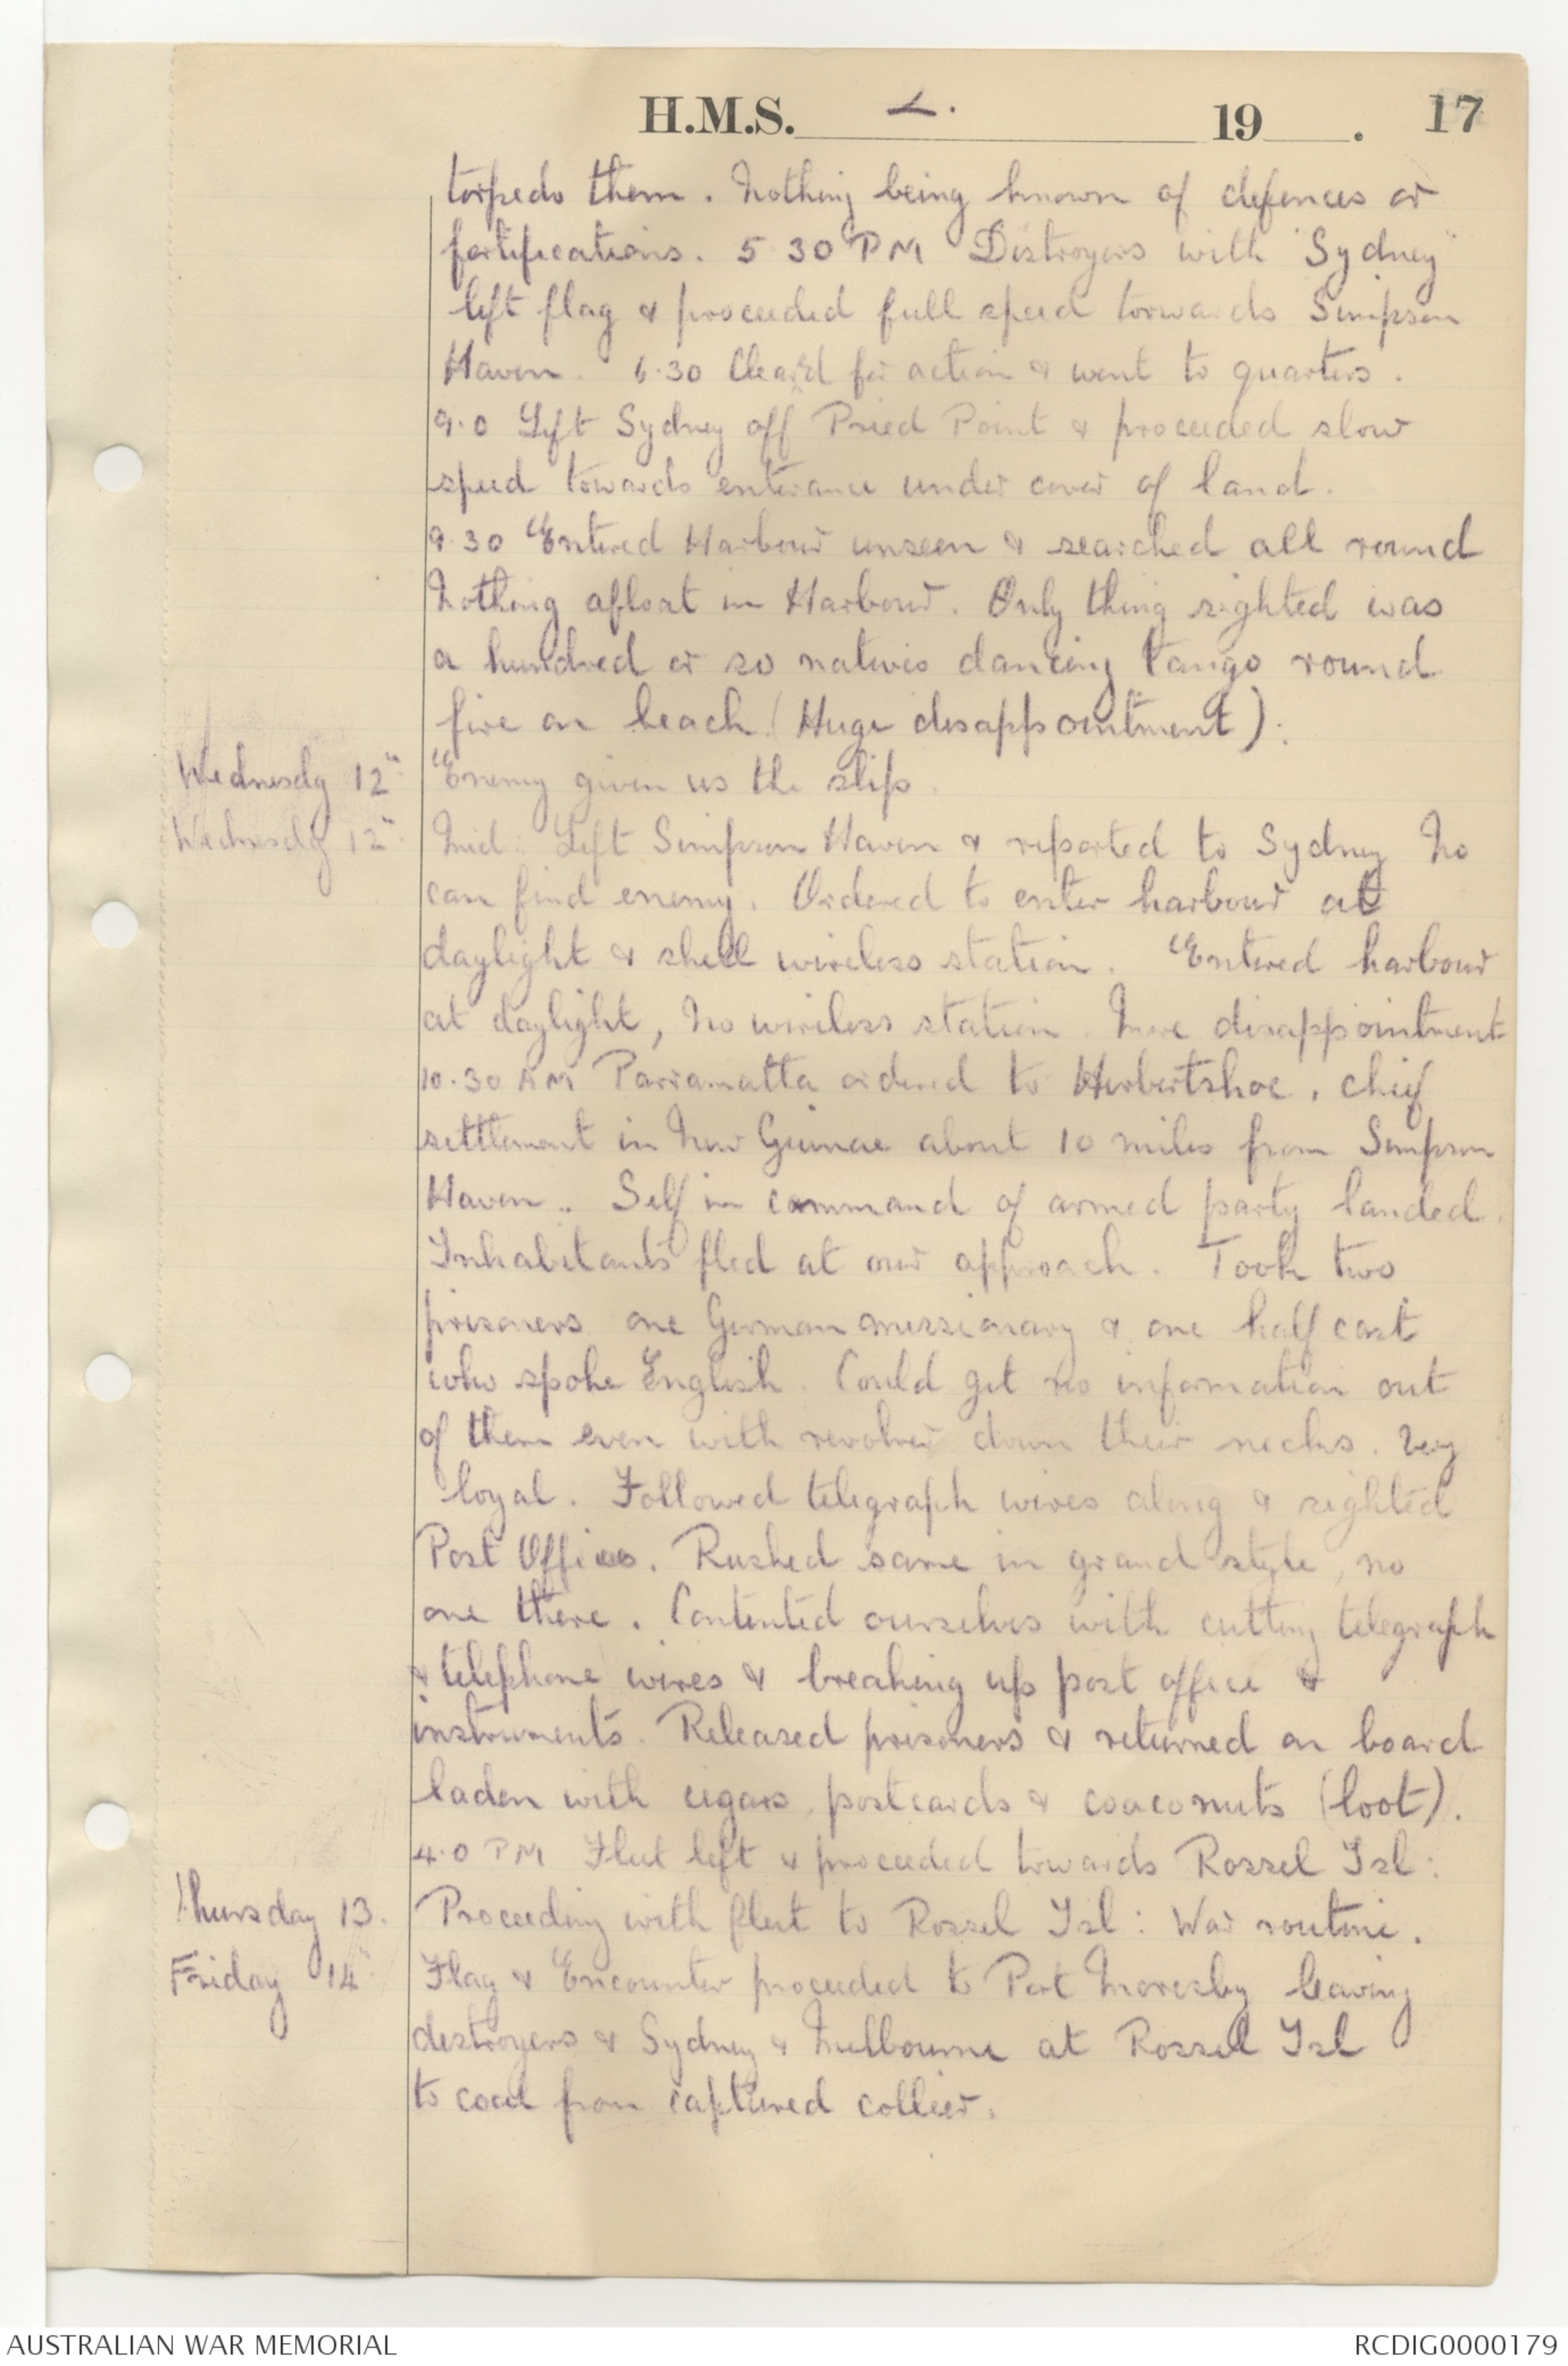 H.M.S. L. 19 . 17
torpedo them. Nothing being known of defences or
fortifications. 5 30 PM Destroyers with "Sydney"
left flag & proceeded full speed torwards Simpson
Haven. 6.30 Clear'd for action & went to quarters.
9.0 Left Sydney off Pried Point & proceeded slow
speed towards enterance under cover of land.
9.30 Entered Harbour unseen & searched all round
Nothing afloat in Harbour. Only thing sighted was
a hundred or so natives dancing tango round
fire on beach (Huge disappointment).
Wednesdy 12th Enemy given us the slip.
Wednesdy 12th Mid: Left Simpson Haven & reported to Sydney No
can find enemy. Ordered to enter harbour at
daylight & shell wireless station. Entered harbour
at daylight, No wireless station. More disappointment
10.30 AM Parramatta ordered to Herbertshoe, chief
settlement in New Guinae about 10 miles from Simpson
Haven. Self in command of armed party landed.
Inhabitants fled at our approach. Took two
prisoners one German missionary & one half cast
who spoke English. Could get no information out
of them even with revolver down their necks. Very
loyal. Followed telegraph wires along & sighted
Post Office. Rushed same in grand style, no
one there. Contented ourselves with cutting telegraph
& telephone wires & breaking up post office &
instruments. Released prisoners & returned on board
laden with cigars, postcards & coaconuts (loot).
4.0 PM Fleet left & proceeded towards Rossel Isl:
Thursday 13. Proceeding with fleet to Rossel Isl: War routine.
Friday 14th Flag & Encounter proceeded to Port Moresby leaving
destroyers & Sydney & Melbourne at Rossel Isl
to coal from captured collier.
AUSTRALIAN WAR MEMORIAL RCDIG0000179